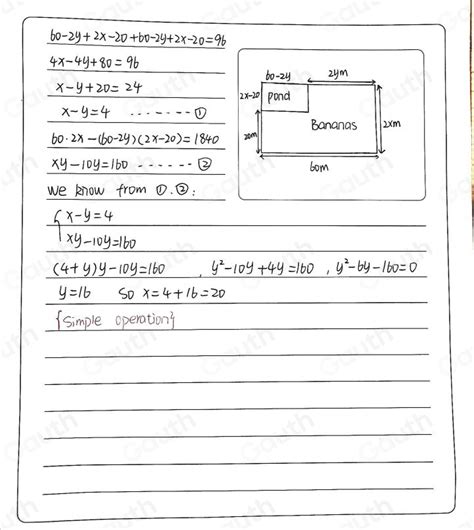 60-2y+2x-20+60-2y+2x-20=96
4x-4y+80=96
x-y+20=24
x-y=4 ------- ①
60·2x-(60-2y)(2x-20)=1840
xy-10y=160 ------ ②
we know from ①.②:
{ x-y=4
xy-10y=160
(4+y)y-10y=160 , y²-10y+4y=160 , y²-6y-160=0
y=16 so x=4+16=20
{Simple operation}
60-2y 2ym
2x-20 pond
20m Bananas 2xm
60m
Gauth